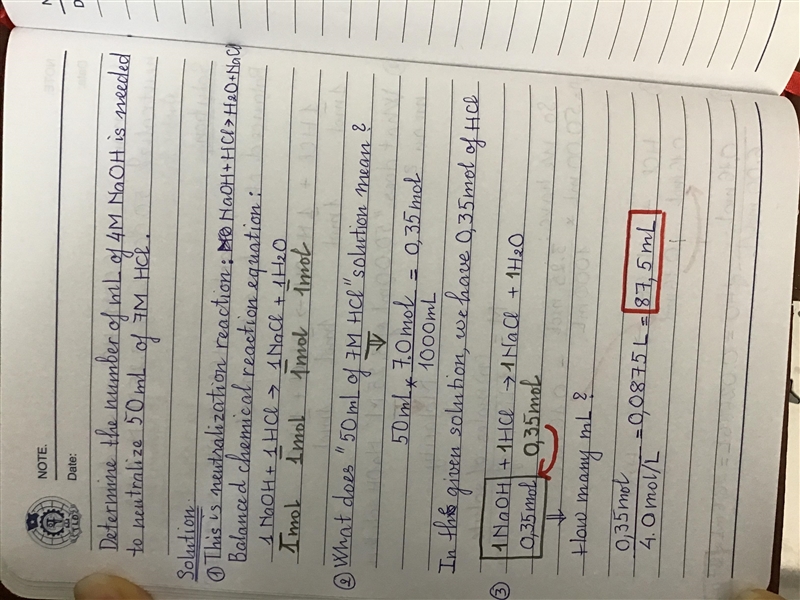 NOTE.
Date:
Determine the number of mL of 4M NaOH is needed
to neutralize 50 mL of 7M HCl.
Solution
① This is neutralization reaction: NaOH+HCl→H2O+NaCl
Balanced chemical reaction equation:
1 NaOH + 1 HCl → 1 NaCl + 1 H2O
1 mol 1 mol 1 mol 1 mol
② What does "50 ml of 7M HCl" solution mean?
⇓
50 mL * 7.0 mol / 1000 mL = 0,35 mol
In the given solution, we have 0,35 mol of HCl
③ 1 NaOH + 1 HCl → 1 NaCl + 1 H2O
0,35 mol 0,35 mol
⇓
How many mL?
0,35 mol / 4.0 mol/L = 0,0875 L = 87,5 mL